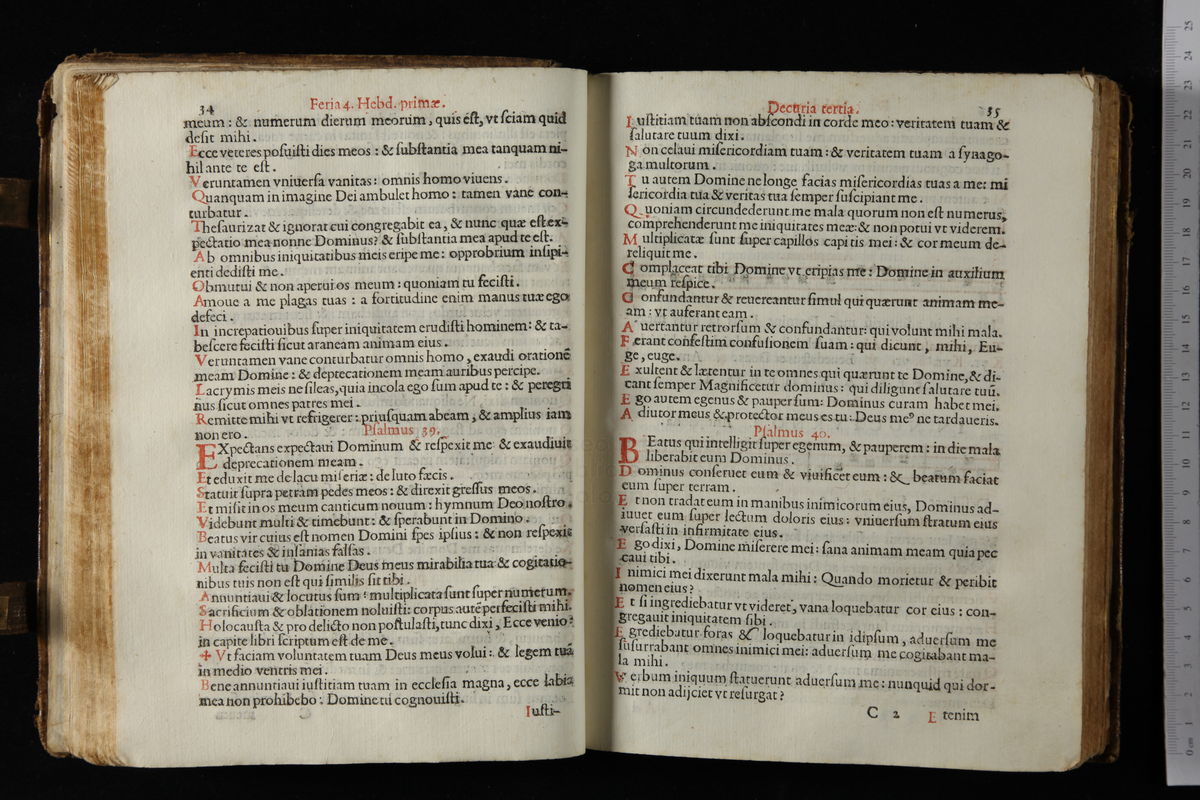 34
Feria 4. Hebd. primæ.
meum : & numerum dierum meorum, quis eſt, vt ſciam quid
deſit mihi.
Ecce veteres poſuiſti dies meos : & ſubſtantia mea tanquam ni-
hil ante te eſt.
Veruntamen vniuerſa vanitas : omnis homo viuens.
Quanquam in imagine Dei ambulet homo : tamen vane con-
turbatur.
Theſaurizat & ignorat cui congregabit ea, & nunc quæ eſt ex-
pectatio mea nonne Dominus? & ſubſtantia mea apud te eſt.
Ab omnibus iniquitatibus meis eripe me : opprobrium inſipi-
enti dediſti me.
Obmutui & non aperui os meum : quoniam tu feciſti.
Amoue a me plagas tuas : a fortitudine enim manus tuæ ego
defeci.
In increpatiouibus ſuper iniquitatem erudiſti hominem : & ta-
beſcere feciſti ſicut araneam animam eius.
Veruntamen vane conturbatur omnis homo, exaudi orationē
meam Domine : & deptecationem meam auribus percipe.
Lacrymis meis ne ſileas, quia incola ego ſum apud te : & peregri
nus ſicut omnes patres mei.
Remitte mihi vt refrigerer : priuſquam abeam, & amplius iam
non ero.
Pſalmus 39.
EXpectans expectaui Dominum & reſpexit me & exaudiuit
deprecationem meam.
Et eduxit me de lacu miſeriæ : de luto fæcis.
Statuit ſupra petram pedes meos : & direxit greſſus meos.
Et miſit in os meum canticum nouum : hymnum Deo noſtro.
Videbunt multi & timebunt : & ſperabunt in Domino.
Beatus vir cuius eſt nomen Domini ſpes ipſius : & non reſpexit
in vanitates & inſanias falſas.
Multa feciſti tu Domine Deus meus mirabilia tua & cogitatio-
nibus tuis non eſt qui ſimilis ſit tibi.
Annuntiaui & locutus ſum : multiplicata ſunt ſuper numerum.
Sacrificium & oblationem noluiſti : corpus autē perfeciſti mihi.
Holocauſta & pro delicto non poſtulaſti, tunc dixi, Ecce venio :
in capite libri ſcriptum eſt de me.
✠ Vt faciam voluntatem tuam Deus meus volui : & legem tuā
in medio ventris mei.
Bene annuntiaui iuſtitiam tuam in eccleſia magna, ecce labia
mea non prohibebo : Domine tu cognouiſti.
Iuſti-
Decuria tertia.
35
Iuſtitiam tuam non abſcondi in corde meo : veritatem tuam &
ſalutare tuum dixi.
Non celaui miſericordiam tuam : & veritatem tuam a ſynago-
ga multorum.
Tu autem Domine ne longe facias miſericordias tuas a me : mi
ſericordia tua & veritas tua ſemper ſuſcipiant me.
Quoniam circundederunt me mala quorum non eſt numerus,
comprehenderunt me iniquitates meæ : & non potui vt viderem.
Multiplicatæ ſunt ſuper capillos capitis mei : & cor meum de-
reliquit me.
Complaceat tibi Domine vt eripias me : Domine in auxilium
meum reſpice.
Confundantur & reuereantur ſimul qui quærunt animam me-
am : vt auferant eam.
Auertantur retrorſum & confundantur : qui volunt mihi mala.
Ferant confeſtim confuſionem ſuam : qui dicunt, mihi, Eu-
ge, euge.
Exultent & lætentur in te omnes qui quærunt te Domine, & di-
cant ſemper Magnificetur dominus : qui diligunt ſalutare tuū.
Ego autem egenus & pauper ſum : Dominus curam habet mei.
Adiutor meus & protector meus es tu : Deus meꝰ ne tardaueris.
Pſalmus 40.
BEatus qui intelligit ſuper egenum, & pauperem : in die mala
liberabit eum Dominus.
Dominus conſeruet eum & viuificet eum : & beatum faciat
eum ſuper terram.
Et non tradat eum in manibus inimicorum eius, Dominus ad-
iuuet eum ſuper lectum doloris eius : vniuerſum ſtratum eius
verſaſti in infirmitate eius.
Ego dixi, Domine miſerere mei : ſana animam meam quia pec
caui tibi.
Inimici mei dixerunt mala mihi : Quando morietur & peribit
nomen eius?
Et ſi ingrediebatur vt videret, vana loquebatur cor eius : con-
gregauit iniquitatem ſibi.
Egrediebatur foras & loquebatur in idipſum, aduerſum me
ſuſurrabant omnes inimici mei : aduerſum me cogitabant ma-
la mihi.
Verbum iniquum ſtatuerunt aduerſum me : nunquid qui dor-
mit non adijciet vt reſurgat?
C 2 Etenim